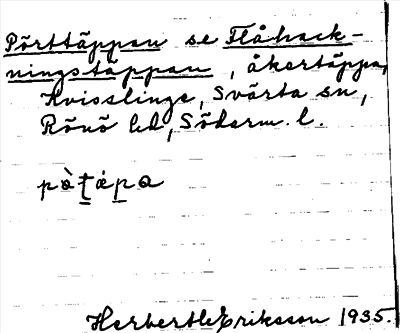 Pörttäppan se Flåhack-
ningstäppan, åkertäppa,
Kvisslinge, Svärta sn,
Rönö hd, Söderm. l.
pò̀ṯáp̱a
Herbert Eriksson 1935.